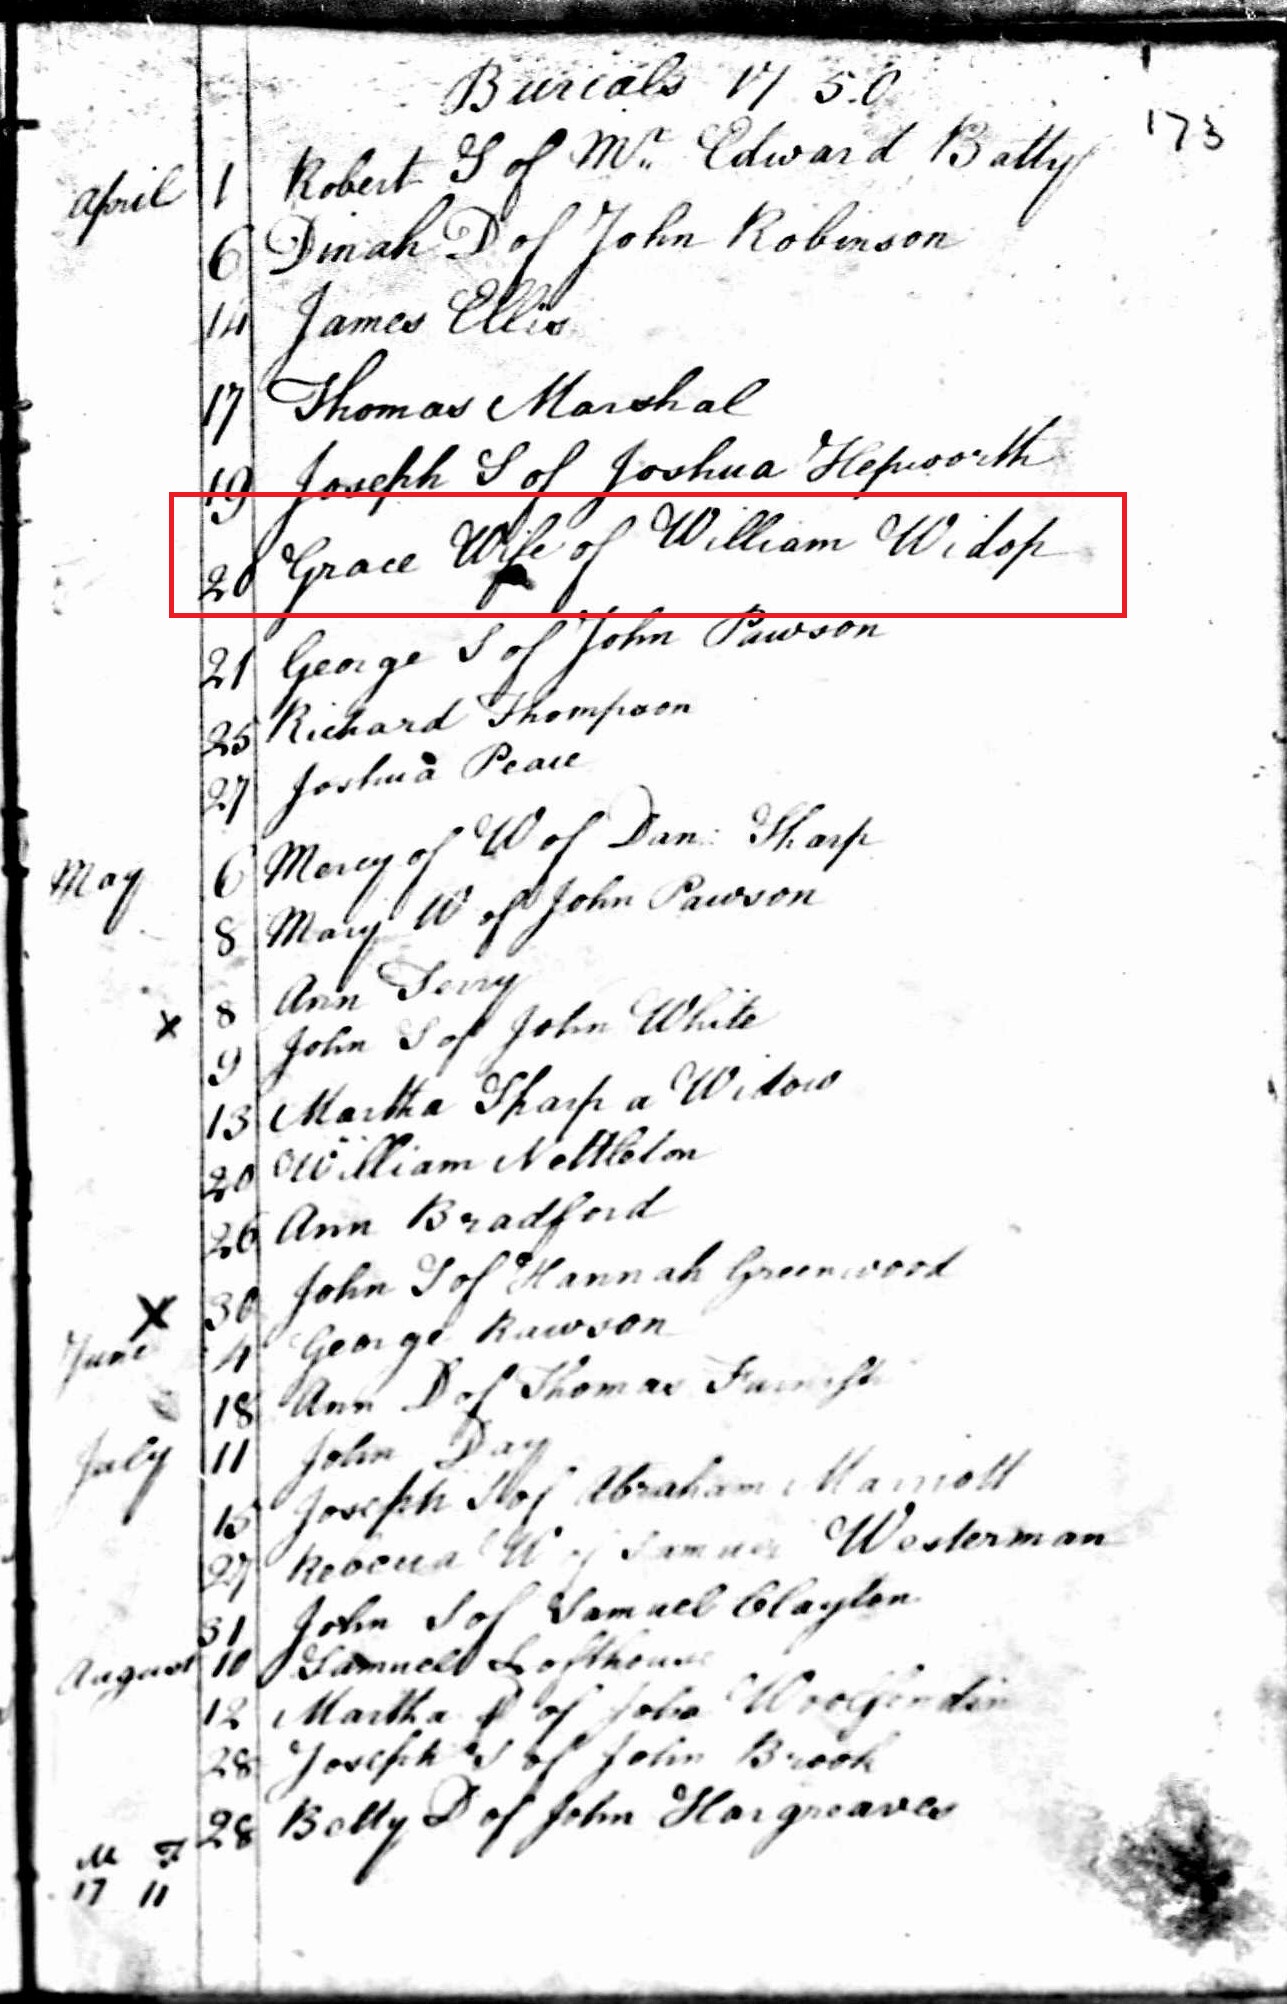 Burials 1750
173
April 1 Robert S of Mr. Edward Batty
6 Dinah D of John Robinson
14 James Ellis
17 Thomas Marshal
19 Joseph S of Joshua Hepworth
20 Grace Wife of William Widop
21 George S of John Pawson
25 Richard Thompson
27 Joshua Peace
May 6 Mercy of W of Dan: Sharp
8 Mary W of John Pawson
8 Ann Terry
x 9 John S of John White
13 Martha Sharp a Widow
20 William Nettleton
26 Ann Bradford
X 30 John S of Hannah Greenwood
June 4 George Rawson
18 Ann D of Thomas
July 11 John Day
15 Joseph S of Abraham Marriott
27 Rebecca W of Samuel Westerman
31 John S of Samuel Clayton
August 10 Samuel Lofthouse
12 Martha D of John Woolfendin
28 Joseph S of John Brook
28 Betty D of John Hargreaves
M F
17 11